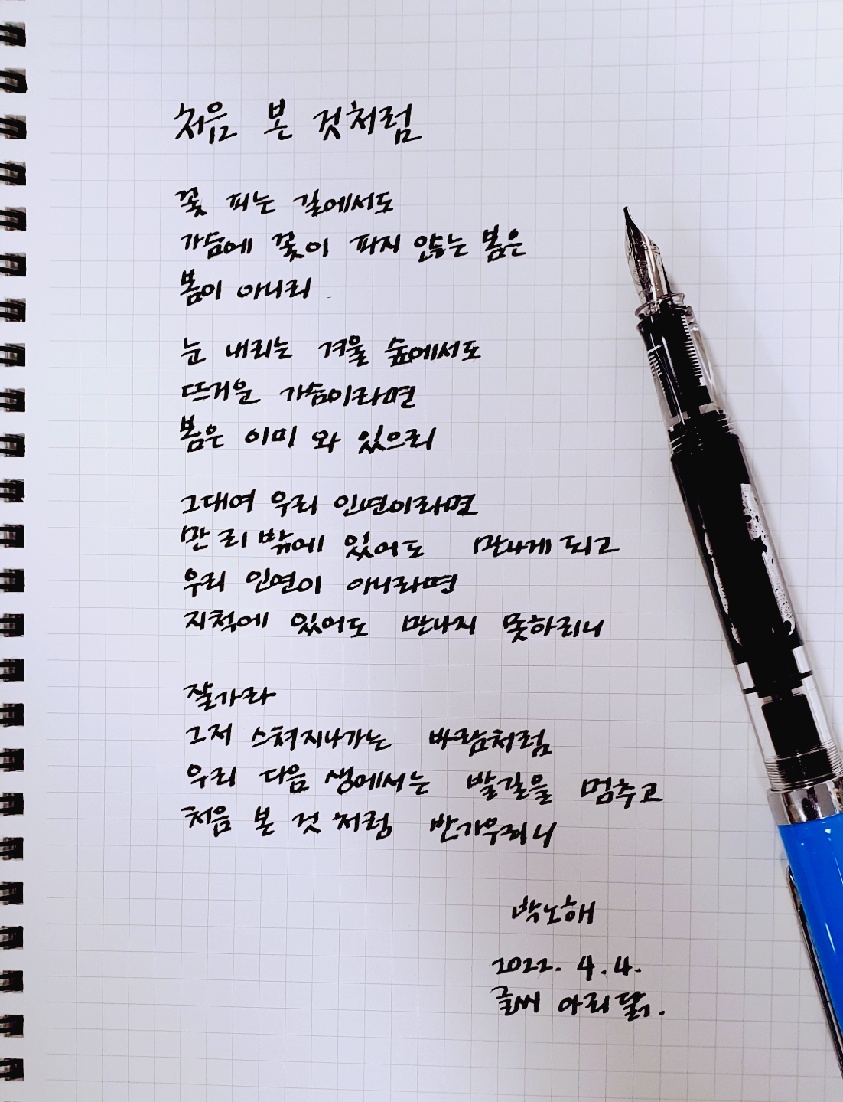 처음 본 것처럼
꽃 피는 길에서도
가슴에 꽃이 피지 않는 봄은
봄이 아니리
눈 내리는 겨울 숲에서도
뜨거운 가슴이라면
봄은 이미 와 있으리
그대여 우리 인연이라면
만 리 밖에 있어도 만나게 되고
우리 인연이 아니라면
지척에 있어도 만나지 못하리니
잘가라
그저 스쳐지나가는 바람처럼
우리 다음 생에서는 발길을 멈추고
처음 본 것처럼 반가우리니
박노해
2022. 4. 4.
글씨 아리닭.